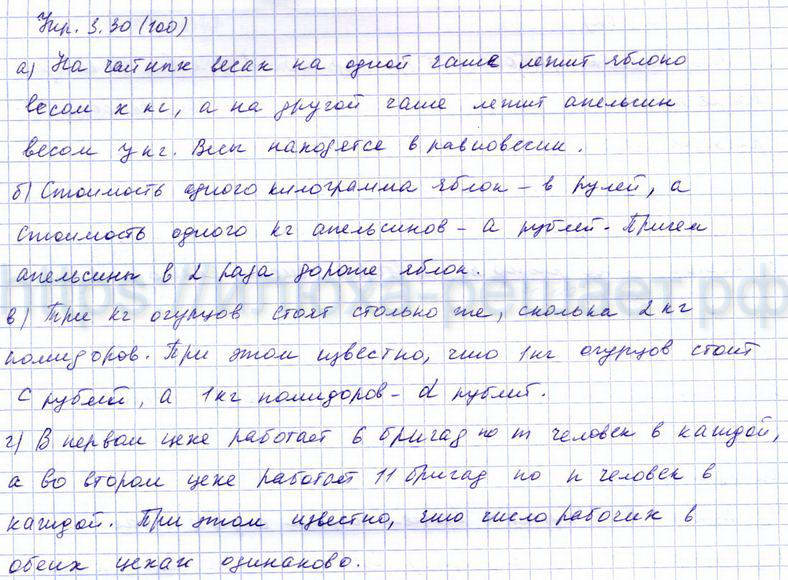 Упр. 3.30 (100)
а) На чашных весах на одной чаше лежит яблоко
весом x кг, а на другой чаше лежит апельсин
весом y кг. Весы находятся в равновесии.
б) Стоимость одного килограмма яблок - b рулей, а
стоимость одного кг апельсинов - a рублей. Причем
апельсины в 2 раза дороже яблок.
в) Три кг огурцов стоят столько же, сколька 2 кг
помидоров. При этом известно, что 1 кг огурцов стоит
c рублей, а 1 кг помидоров - d рублей.
г) В первом цехе работает 6 бригад по m человек в каждой,
а во втором цехе работает 11 бригад по n человек в
каждой. При этом известно, что число рабочих в
обеих цехах одинаково.